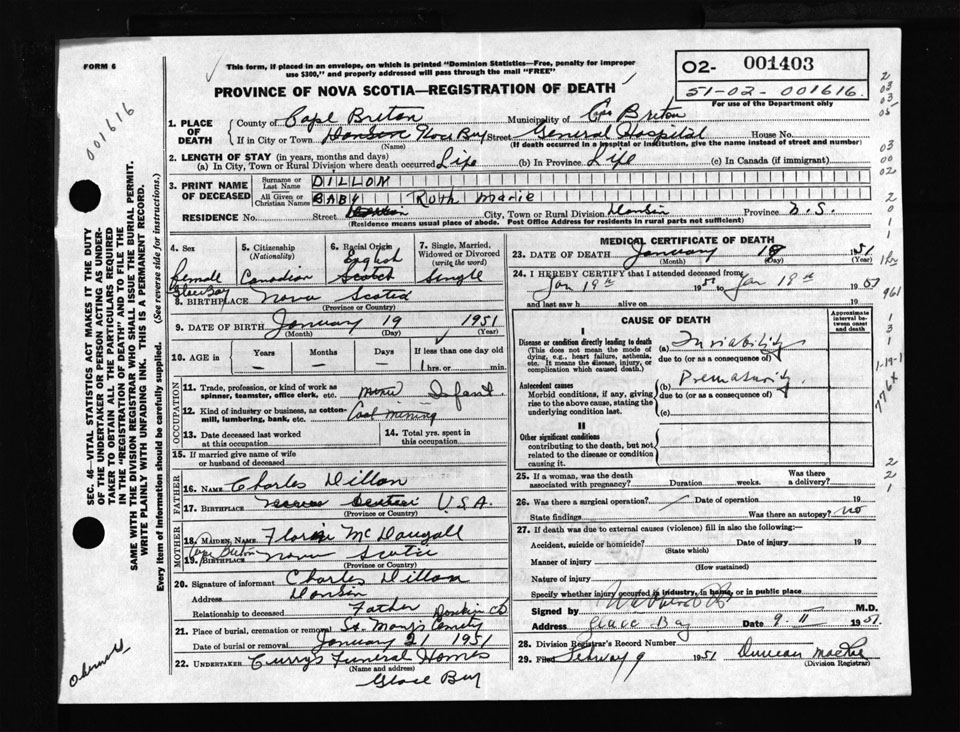 FORM 6
This form, if placed in an envelope, on which is printed "Dominion Statistics—Free, penalty for improper
use $300," and properly addressed will pass through the mail "FREE"
PROVINCE OF NOVA SCOTIA—REGISTRATION OF DEATH
O2- 001403
51-02-001616.
For use of the Department only
001616
1. PLACE OF DEATH
County of Cape Breton Municipality of Cape Breton
If in City or Town Glace Bay Street General Hospital House No.
(Name) (If death occurred in a hospital or institution, give the name instead of street and number)
2. LENGTH OF STAY (in years, months and days)
(a) In City, Town or Rural Division where death occurred Life (b) In Province Life (c) In Canada (if immigrant)
3. PRINT NAME OF DECEASED
Surname or Last Name DILLON
All Given or Christian Names BABY Ruth Marie
RESIDENCE No. Street City, Town or Rural Division Province N.S.
(Residence means usual place of abode. Post Office Address for residents in rural parts not sufficient)
4. Sex Female
5. Citizenship (Nationality) Canadian
6. Racial Origin English Scotch
7. Single, Married, Widowed or Divorced (write the word) Single
Glace Bay
8. BIRTHPLACE Nova Scotia
(Province or Country)
9. DATE OF BIRTH January 19 1951
(Month) (Day) (Year)
10. AGE in Years Months Days If less than one day old
— — 1 hrs. or min.
OCCUPATION
11. Trade, profession, or kind of work as spinner, teamster, office clerk, etc. Infant
12. Kind of industry or business, as cotton-mill, lumbering, bank, etc. Coal mining
13. Date deceased last worked at this occupation
14. Total yrs. spent in this occupation
15. If married give name of wife or husband of deceased
FATHER
16. NAME Charles Dillon
17. BIRTHPLACE U.S.A.
(Province or Country)
MOTHER
18. MAIDEN NAME McDougall
Cape Breton
19. BIRTHPLACE Nova Scotia
(Province or Country)
20. Signature of informant Charles Dillon
Address
Relationship to deceased Father
21. Place of burial, cremation or removal St. Mary's Cemetry Donkin CB
Date of burial or removal January 21 1951
22. UNDERTAKER Curry's Funeral Homes
(Name and address)
Glace Bay
MEDICAL CERTIFICATE OF DEATH
23. DATE OF DEATH January 1951
(Month) (Day) (Year)
24. I HEREBY CERTIFY that I attended deceased from
Jan 19th 1951 Jan 19th 1951
and last saw h alive on 19
CAUSE OF DEATH
Approximate interval between onset and death
I
Disease or condition directly leading to death
(This does not mean the mode of dying, e.g., heart failure, asthenia, etc. It means the disease, injury, or complication which caused death.)
(a) Inviability
due to (or as a consequence of)
Antecedent causes
Morbid conditions, if any, giving rise to the above cause, stating the underlying condition last.
(b) Prematurity.
due to (or as a consequence of)
(c)
II
Other significant conditions
contributing to the death, but not related to the disease or condition causing it.
25. If a woman, was the death associated with pregnancy? Duration weeks. Was there a delivery?
26. Was there a surgical operation? Date of operation 19
State findings Was there an autopsy? no
27. If death was due to external causes (violence) fill in also the following:—
Accident, suicide or homicide? Date of injury 19
(State which)
Manner of injury
(How sustained)
Nature of injury
Specify whether injury occurred in industry, in home, or in public place
Signed by M.D.
Address Glace Bay Date 9.II 1951
28. Division Registrar's Record Number
29. Filed February 9 1951 Duncan MacRae
(Division Registrar)
SEC. 46—VITAL STATISTICS ACT MAKES IT THE DUTY
OF THE UNDERTAKER OR PERSON ACTING AS UNDER-
TAKER TO OBTAIN ALL THE PARTICULARS REQUIRED
IN THE "REGISTRATION OF DEATH" AND TO FILE THE
SAME WITH THE DIVISION REGISTRAR WHO SHALL ISSUE THE BURIAL PERMIT.
WRITE PLAINLY WITH UNFADING INK. THIS IS A PERMANENT RECORD.
Every item of Information should be carefully supplied. (See reverse side for instructions.)